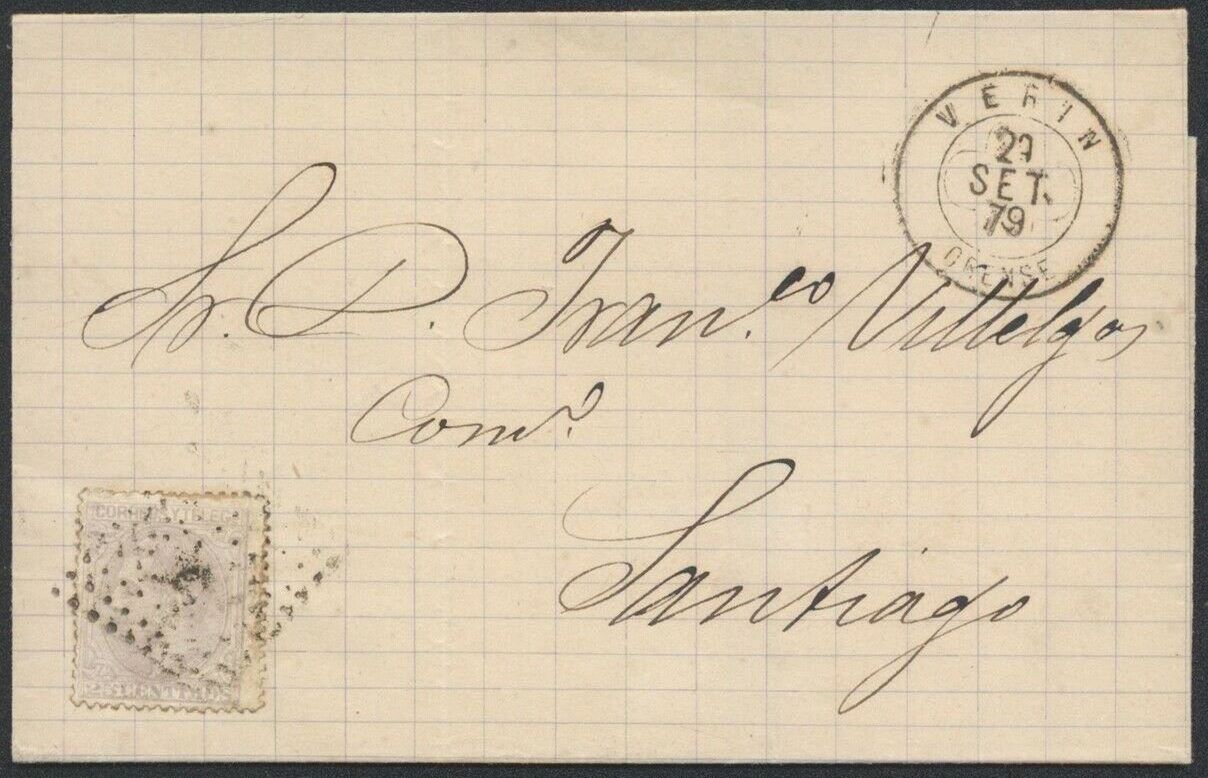 VERIN
SET.
79
ORENSE
Sr. D. Fran.co Villelgas
Com.o
Santiago
CORREOS Y TELEG
25 CENTIMOS